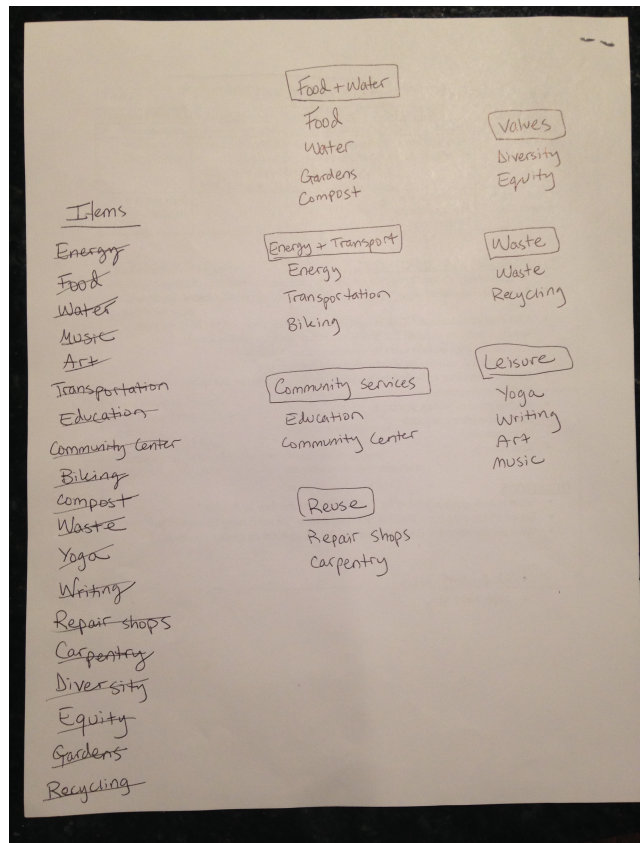 Items
Energy
Food
Water
Music
Art
Transportation
Education
Community Center
Biking
Compost
Waste
Yoga
Writing
Repair shops
Carpentry
Diversity
Equity
Gardens
Recycling
Food + Water
Food
Water
Gardens
Compost
Energy + Transport
Energy
Transportation
Biking
Community Services
Education
Community Center
Reuse
Repair shops
Carpentry
Values
Diversity
Equity
Waste
Waste
Recycling
Leisure
Yoga
Writing
Art
Music